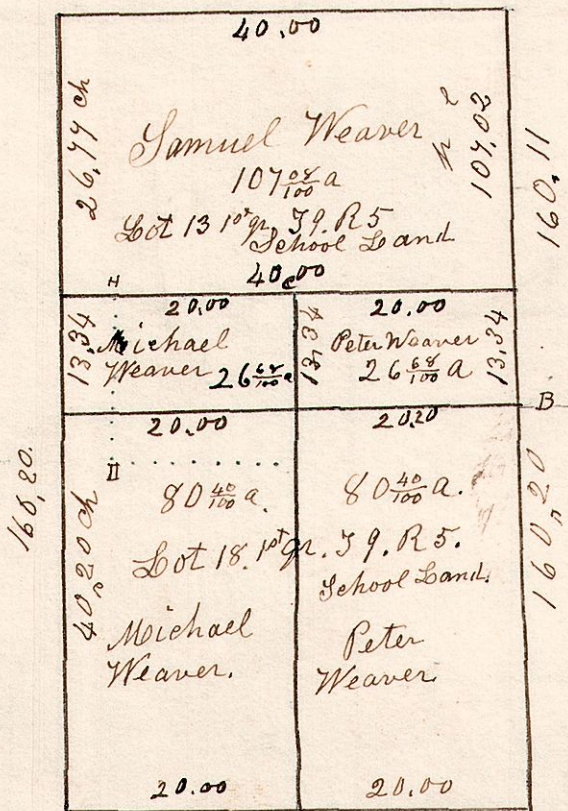 40.00
26,77 ch
Samuel Weaver
107 08/100 a
107,02
160,11
Lot 13 1st qr. T9. R5
School Land
40.00
H
20.00
20.00
13,34
Michael
Weaver 26 68/100 a
13,34
Peter Weaver
26 68/100 a
13,34
B
20.00
20.20
II
80 40/100 a.
80 40/100 a.
160,20.
40,20 ch
160,20
Lot 18. 1st qr. T9. R5.
School Land.
Michael
Weaver.
Peter
Weaver.
20.00
20.00